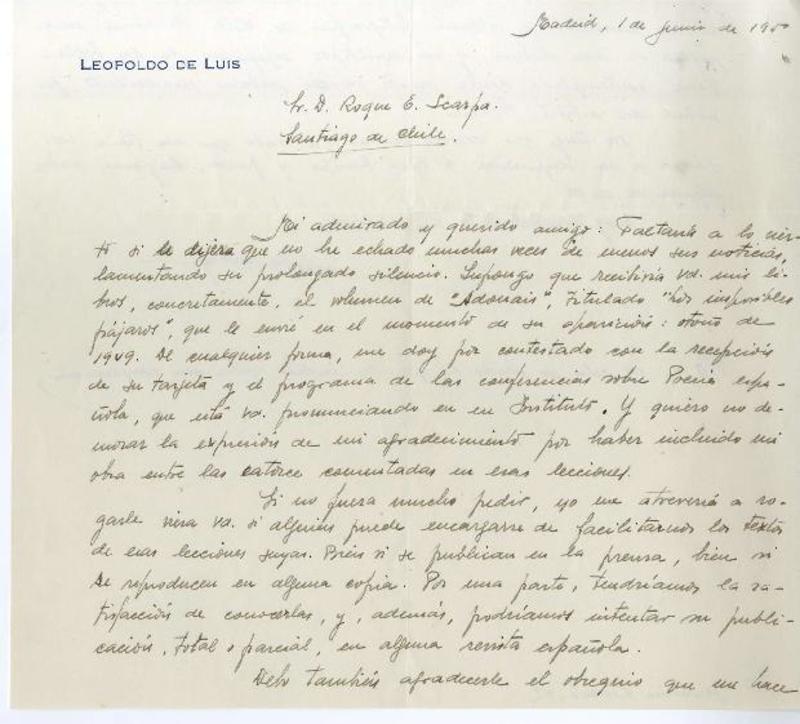 Madrid, 1 de junio de 1950
LEOPOLDO DE LUIS
Sr. D. Roque E. Scarpa.
Santiago de Chile.
Mi admirado y querido amigo: Faltaría a lo cier-
to si le dijera que no he echado muchas veces de menos sus noticias,
lamentando su prolongado silencio. Supongo que recibiría vd. mis li-
bros, concretamente, el volumen de "Adonais", titulado "Los imposibles
pájaros", que le envié en el momento de su aparición: otoño de
1949. De cualquier forma, me doy por contestado con la recepción
de su tarjeta y el programa de las conferencias sobre Poesía espa-
ñola, que está vd. pronunciando en en Instituto. Y quiero no de-
morar la expresión de mi agradecimiento por haber incluido mi
obra entre las catorce comentadas en esas lecciones.
Si no fuera mucho pedir, yo me atrevería a ro-
garle viera vd. si alguien puede encargarse de facilitarnos los textos
de esas lecciones suyas. Bien si se publican en la prensa, bien si
se reproducen en alguna copia. Por una parte, tendríamos la sa-
tisfacción de conocerlas, y, además, podríamos intentar su publi-
cación, total o parcial, en alguna revista española.
Debo también agradecerle el obsequio que me hace